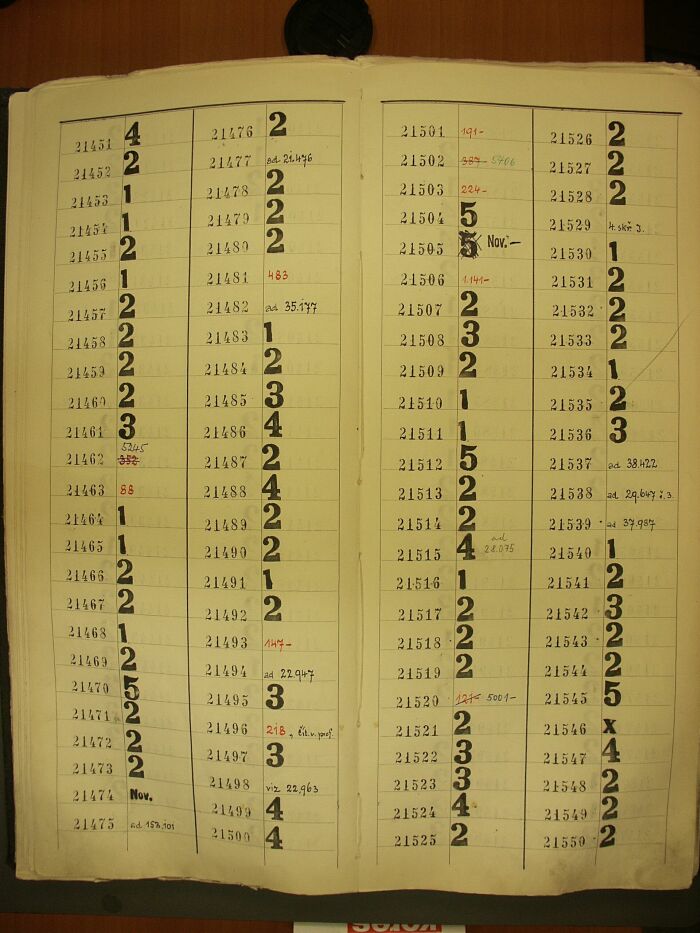 21451 4
21452 2
21453 1
21454 1
21455 2
21456 1
21457 2
21458 2
21459 2
21460 2
21461 3
5245
21462 352
21463 88
21464 1
21465 1
21466 2
21467 2
21468 1
21469 2
21470 5
21471 2
21472 2
21473 2
21474 Nov.
21475 ad 153.101
21476 2
21477 ad 21.476
21478 2
21479 2
21480 2
21481 483
21482 ad 35.177
21483 1
21484 2
21485 3
21486 4
21487 2
21488 4
21489 2
21490 2
21491 1
21492 2
21493 147-
21494 ad 22.947
21495 3
21496 218, čít. v. prof.
21497 3
21498 viz 22.963
21499 4
21500 4
21501 191-
21502 387- 5706
21503 224-
21504 5
21505 5 Nov.-
21506 1.141-
21507 2
21508 3
21509 2
21510 1
21511 1
21512 5
21513 2
21514 2
21515 4 ad
28.075
21516 1
21517 2
21518 2
21519 2
21520 121- 5001-
21521 2
21522 3
21523 3
21524 4
21525 2
21526 2
21527 2
21528 2
21529 4. skř. J.
21530 1
21531 2
21532 2
21533 2
21534 1
21535 2
21536 3
21537 ad 38.422
21538 ad 29.647 č. 3.
21539 ad 37.987
21540 1
21541 2
21542 3
21543 2
21544 2
21545 5
21546 x
21547 4
21548 2
21549 2
21550 2